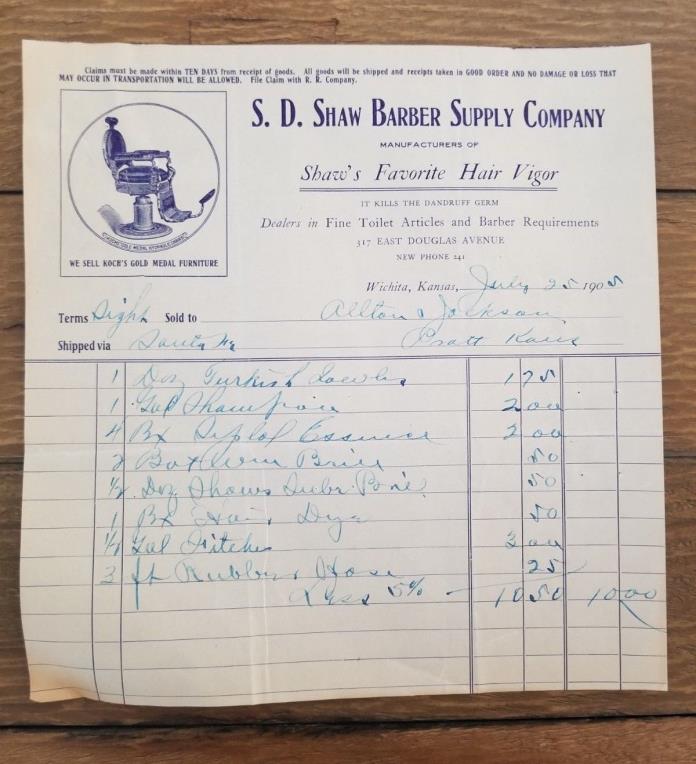 Claims must be made within TEN DAYS from receipt of goods. All goods will be shipped and receipts taken in GOOD ORDER AND NO DAMAGE OR LOSS THAT
MAY OCCUR IN TRANSPORTATION WILL BE ALLOWED. File Claim with R. R. Company.
S. D. SHAW BARBER SUPPLY COMPANY
MANUFACTURERS OF
Shaw's Favorite Hair Vigor
IT KILLS THE DANDRUFF GERM
Dealers in Fine Toilet Articles and Barber Requirements
317 EAST DOUGLAS AVENUE
NEW PHONE 241
WE SELL KOCH'S GOLD MEDAL FURNITURE
Wichita, Kansas, July 25 1905
Terms Sight Sold to Allton & Jackson
Shipped via Santa Fe Pratt Kans
1 Doz Turkish Towels 1 75
1 Gal Shampoo 2 00
4 Bx Essence 2 00
2 50
1/2 Doz Shaws 50
1 Bx Hair Dye 50
Gal Fitches 3 00
3 ft Rubber Hose 25
Less 5% - 10 50 10 00